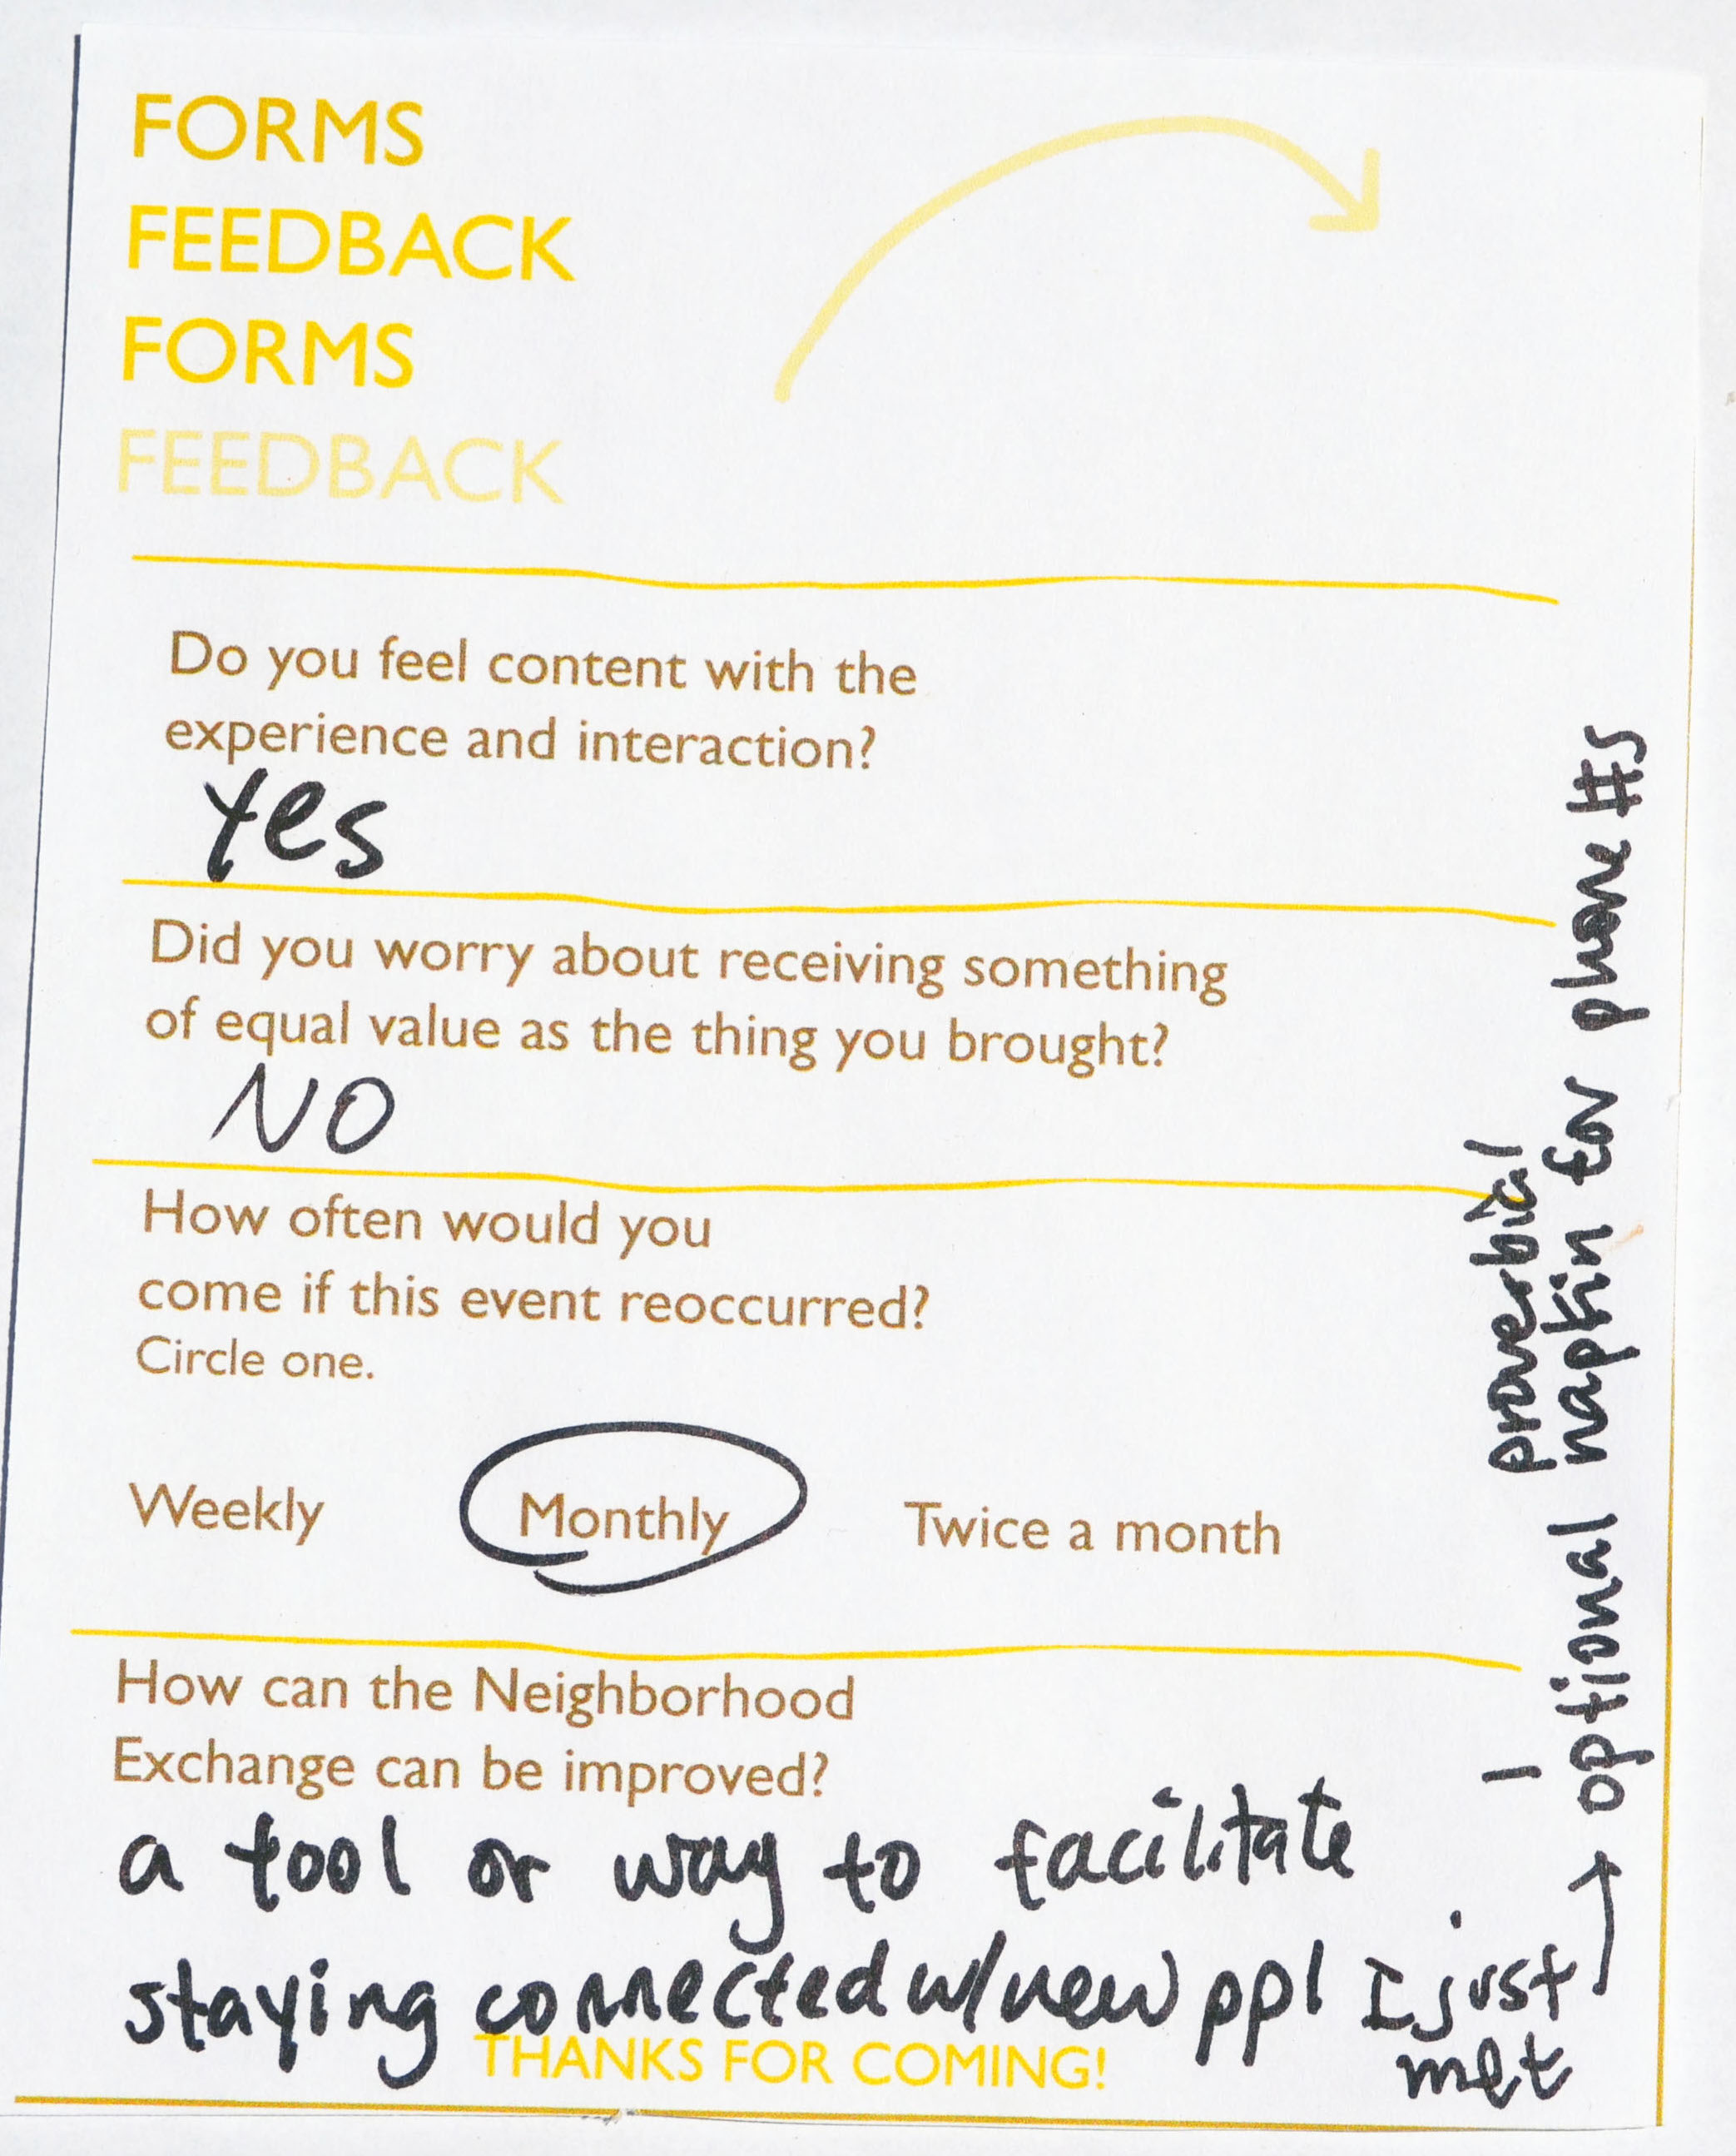 FORMS
FEEDBACK
FORMS
FEEDBACK
Do you feel content with the
experience and interaction?
Yes
Did you worry about receiving something
of equal value as the thing you brought?
NO
How often would you
come if this event reoccurred?
Circle one.
Weekly Monthly Twice a month
How can the Neighborhood
Exchange can be improved?
a tool or way to facilitate
staying connected w/new ppl I just
met
THANKS FOR COMING!
- proverbial
optional napkin for phone #s